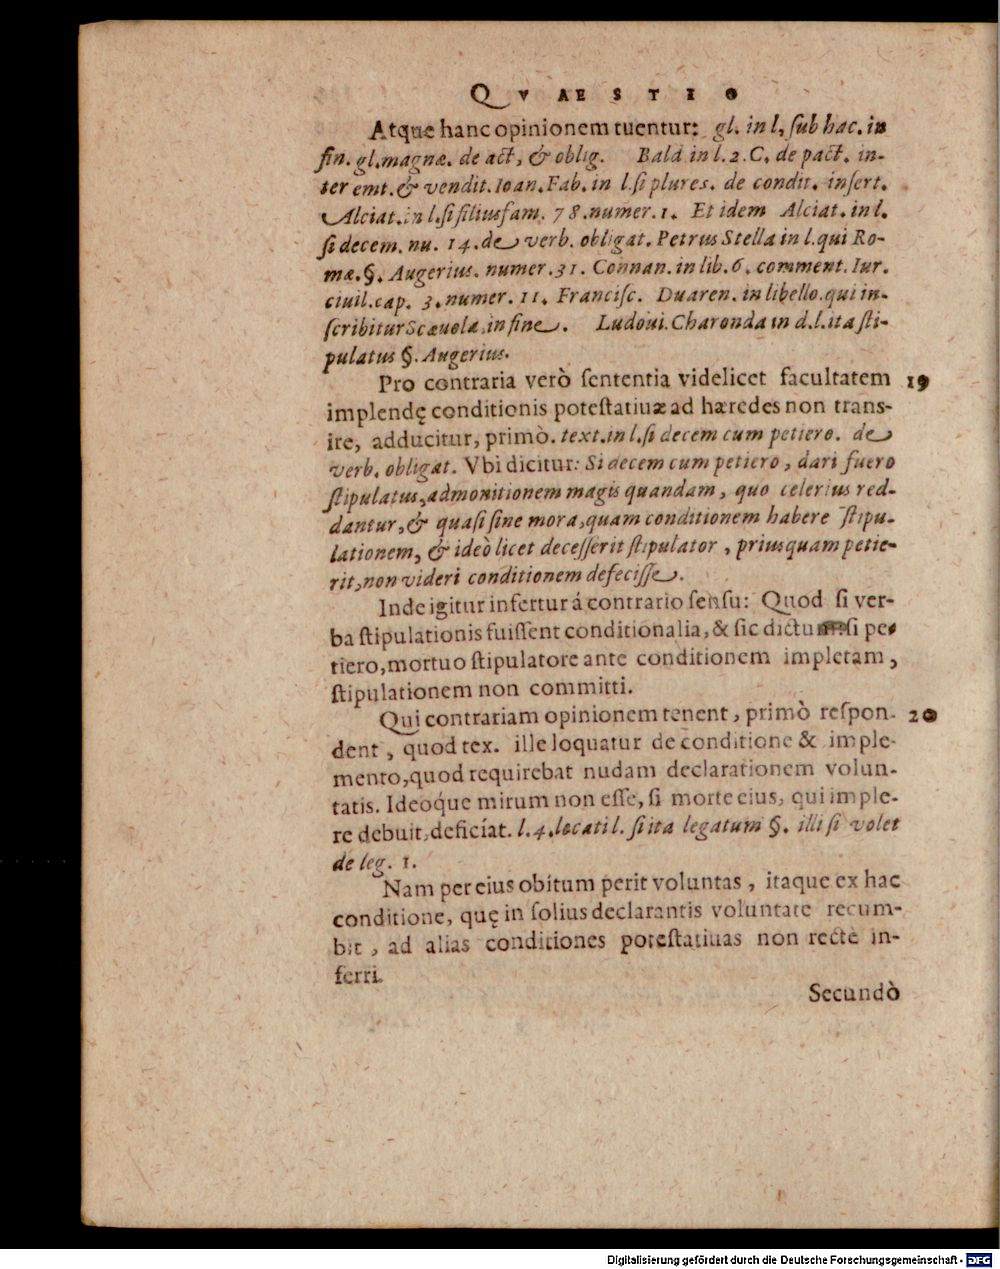 QVAESTIO
Atque hanc opinionem tuentur: gl. in l, ſub hac. in
fin. gl. magnæ. de act, & oblig. Bald in l. 2. C. de pact. in-
ter emt. & vendit. Ioan. Fab. in l. ſi plures. de condit. inſert.
Alciat. in l. ſi filiusfam. 78. numer. 1. Et idem Alciat. in l.
ſi decem. nu. 14. de verb. obligat. Petrus Stella in l. qui Ro-
mæ. §. Augerius. numer. 31. Connan. in lib. 6. comment. Iur.
ciuil. cap. 3. numer. 11. Franciſc. Duaren. in libello. qui in-
ſcribitur Scæuola. in fine. Ludoui. Charonda in d. l. ita ſti-
pulatus §. Augerius.
Pro contraria verò ſententia videlicet facultatem 19
implendę conditionis poteſtatiuæ ad hæredes non trans-
ire, adducitur, primò. text. in l. ſi decem cum petiero. de
verb. obligat. Vbi dicitur: Si decem cum petiero, dari fuero
ſtipulatus, admonitionem magis quandam, quo celerius red-
dantur, & quaſi ſine mora, quam conditionem habere ſtipu-
lationem, & ideò licet deceſſerit ſtipulator, priusquam petie-
rit, non videri conditionem defeciſſe.
Inde igitur infertur á contrario ſenſu: Quod ſi ver-
ba ſtipulationis fuiſſent conditionalia, & ſic dictum ſi pe-
tiero, mortuo ſtipulatore ante conditionem impletam,
ſtipulationem non committi.
Qui contrariam opinionem tenent, primò reſpon- 20
dent, quod tex. ille loquatur de conditione & imple-
mento, quod requirebat nudam declarationem volun-
tatis. Ideoque mirum non eſſe, ſi morte eius, qui imple-
re debuit, deficíat. l. 4. locati l. ſi ita legatum §. illi ſi volet
de leg. 1.
Nam per eius obitum perit voluntas, itaque ex hac
conditione, quę in ſolius declarantis voluntate recum-
bit, ad alias conditiones poteſtatiuas non rectè in-
ferri.
Secundò
Digitalisierung gefördert durch die Deutsche Forschungsgemeinschaft - DFG